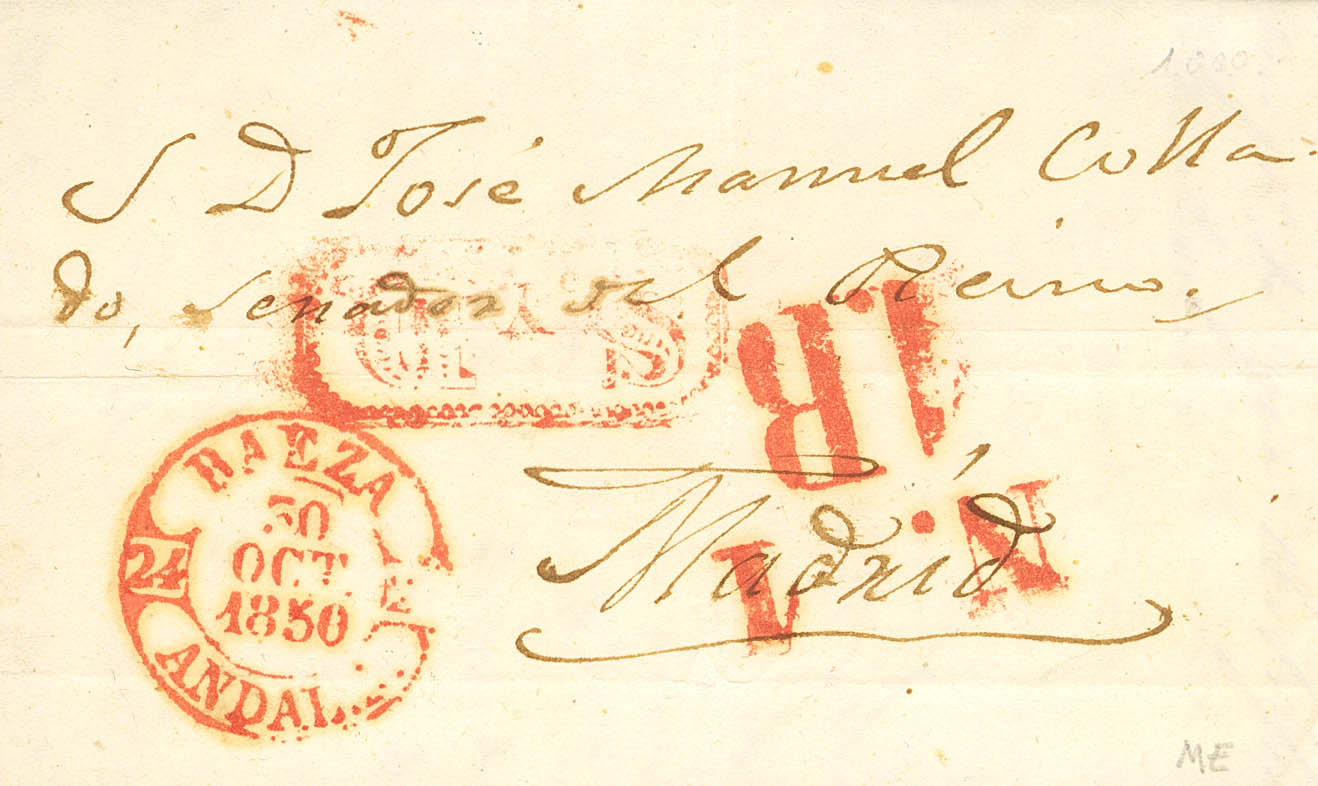 1.000.
S D José Manuel Colla-
do, Senador del Reino.
1R
Madrid
BAEZA
30
OCT
1850
24
ANDAL.
ME